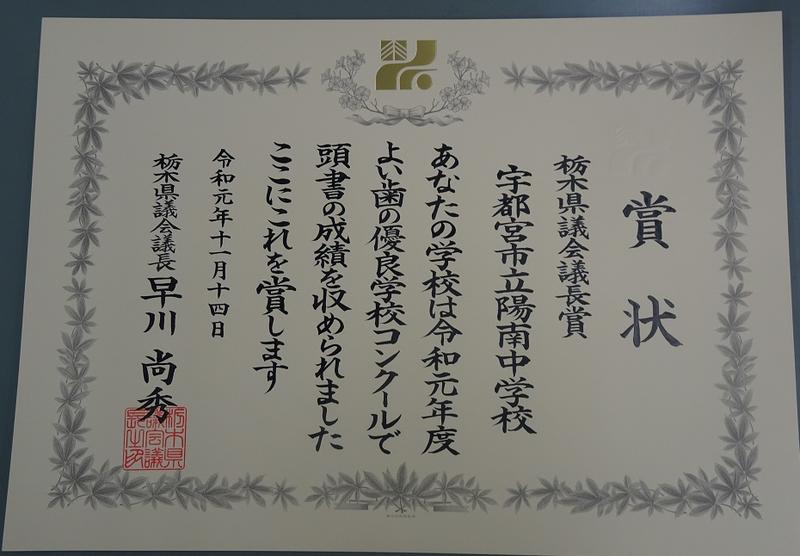 賞状
栃木県議会議長賞
宇都宮市立陽南中学校
あなたの学校は令和元年度
よい歯の優良学校コンクールで
頭書の成績を収められました
ここにこれを賞します
令和元年十一月十四日
栃木県議会議長 早川 尚秀
栃木県
議会議
長之印